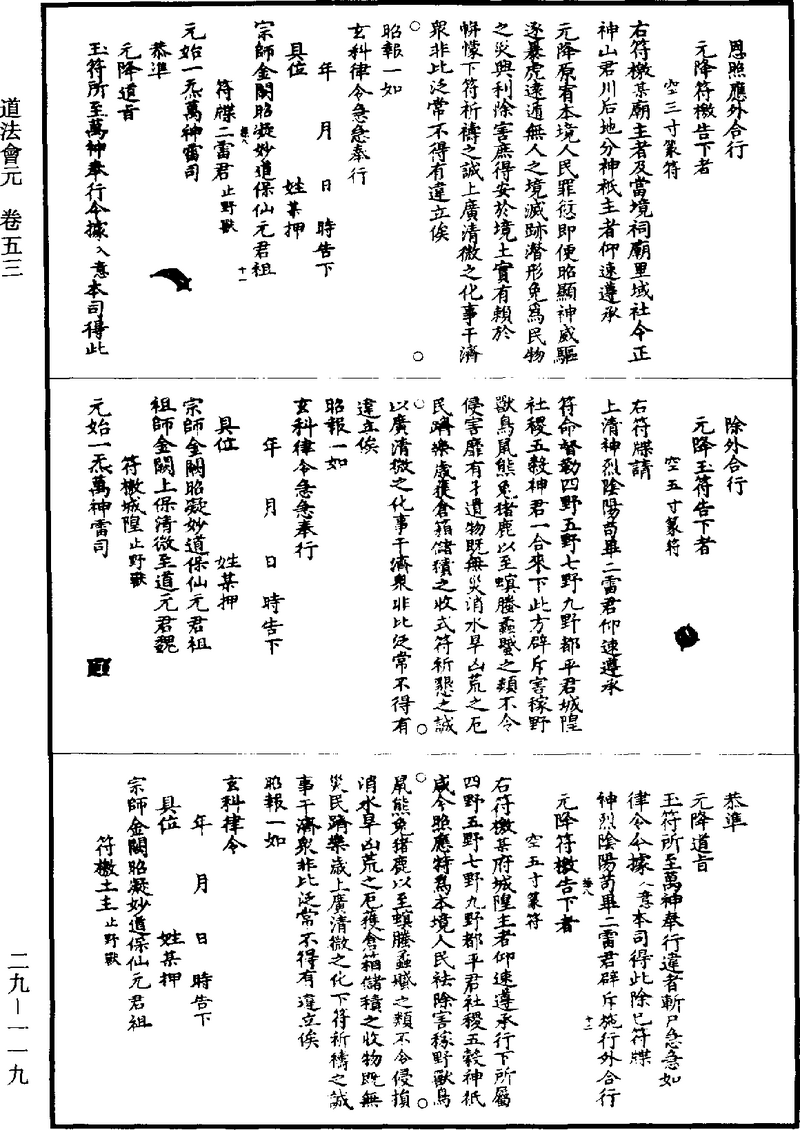 道法會元　卷五三
恩照應外合行
元降符檄告下者
空三寸篆符
右符檄某廟主者及當境祠廟里域社令正
神山君川后地分神祇主者仰速遵承
元降原宥本境人民罪愆即便昭顯神威驅
逐暴虎遠遁無人之境滅跡潛形免爲民物
之災興利除害庶得安於境土實有賴於
帡幪下符祈禱之誠上廣清微之化事干濟
眾非比泛常不得有違立俟
昭報一如
玄科律令急急奉行
年　月　日　時告下
具位　姓某押
宗師金闕昭凝妙道保仙元君祖
符牒二雷君止野獸
元始一炁萬神雷司
恭準
元降道旨
玉符所至萬神奉行今據入意本司得此
除外合行
元降玉符告下者
空五寸篆符
右符牒請
上清神烈陰陽苟畢二雷君仰速遵承
符命督勒四野五野七野九野都平君城隍
社稷五穀神君一合來下此方辟斥害稼野
獸鳥鼠熊兔猪鹿以至螟螣蟊蠈之類不令
侵害靡有孑遺物既無災消水旱凶荒之厄
民躋樂歲獲倉箱儲積之收式符祈懇之誠
以廣清微之化事干濟眾非比泛常不得有
違立俟
昭報一如
玄科律令急急奉行
年　月　日　時告下
具位　姓某押
宗師金闕昭凝妙道保仙元君祖
祖師金闕上保清微至道元君魏
符檄城隍止野獸
元始一炁萬神雷司
恭準
元降道旨
玉符所至萬神奉行違者斬尸急急如
律令今據入意本司得此除已符牒
神烈陰陽苟畢二雷君辟斥施行外合行
元降符檄告下者
空五寸篆符
右符檄某府城隍主者仰速遵承行下所屬
四野五野七野九野都平君社稷五穀神祇
咸令照應特爲本境人民祛除害稼野獸鳥
鼠熊兔猪鹿以至螟螣蟊蠈之類不令侵損
消水旱凶荒之厄獲倉箱儲積之收物既無
災民躋樂歲上廣清微之化下符祈禱之誠
事干濟眾非比泛常不得有違立俟
昭報一如
玄科律令
年　月　日　時告下
具位　姓某押
宗師金闕昭凝妙道保仙元君祖
符檄土主止野獸
二九—一一九